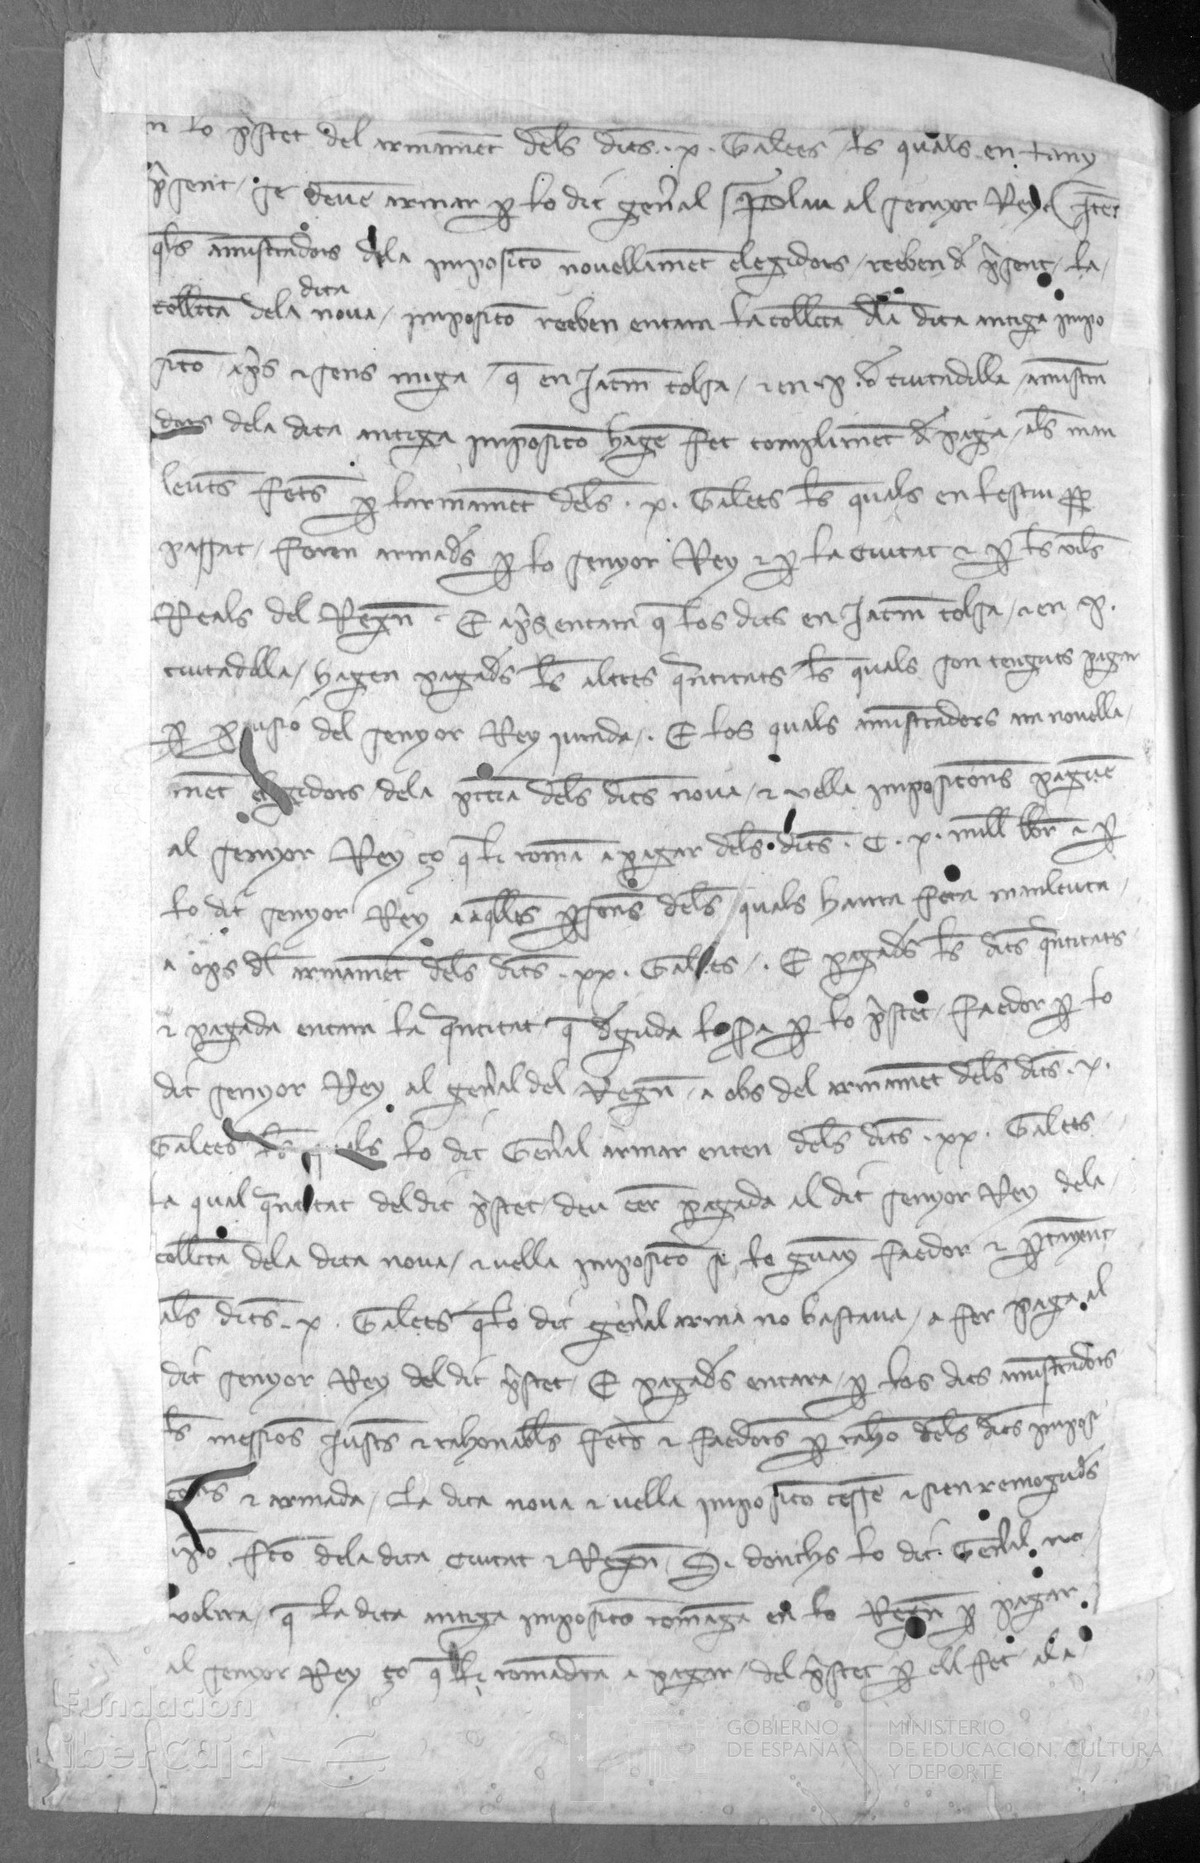 lo p̃stet del armam̃et dels dits .x. Galees les quals en lany
p̃sent se deuẽ armar ꝑ lo dit geñal al senyor Rey
quals amĩstradors dela imposicio nouellamẽt elegidors reeben d̃ p̃sent la
dita
coll̃cta dela noua imposicio reeben encara la coll̃cta dl̃a dita antiga impo
sicio ap̃s e sens miga q̃ en Jacm̃ colsa e en .p. d̃ ciutadilla amĩstra
dors dela dita antiga imposicio hagẽ fet complimẽt d̃ paga als man
leuts fets ꝑ larmamẽt dels .x. Galees les quals en lestiu ꝓp
passat foren armades ꝑ lo senyor Rey e ꝑ la Ciutat e ꝑ les viles
Reals del Regñ E ap̃s encara q̃ los dits en Jacm̃ colsa e en .p.
ciutadilla hagen pagades les altres q̃ntitats les quals son tenguts pagar
ꝑ ꝓuisio del senyor Rey E los quals amĩstradors nouella
mẽt elegidors dela dels dits noua e vella imposicions paguẽ
al senyor Rey ço q̃ li romã a pagar dels dits .C.x. mill lbr̃ e ꝑ
lo dit senyor Rey a aq̃lles ꝑsones dels quals hauia feta manleuta
a ops dl̃ armamẽt dels dits .xx. Galees. E pagades les dits q̃ntitats
e pagada encara la q̃ntitat q̃ deguda ꝑ lo p̃stet faedor ꝑ lo
dit senyor Rey al geñal del Regñ a obs del armamẽt dels dits .x.
Galees les quals lo dit Geñal armar enten dels dits .xx. Galees
la qual q̃ntitat deldit p̃stet deu eẽr pagada al dit senyor Rey dela
coll̃cta dela dita noua e vella imposicio si lo guãy faedor e ꝑtayent
als dits .x. Galees q̃ lo dit geñal arma no bastaua a fer paga al
dit senyor Rey del dit p̃stet E pagades encara ꝑ los dits amĩstradors
les messions justes e rahonables fets e faedors ꝑ raho dels dits impos
cons e armada la dita noua e vella imposicio cessẽ e sien remogudes
dela dita Ciutat e Regñ Si donchs lo dit Geñal no
volra q̃ la dita antiga imposicio romãga en lo Regñ ꝑ pagar
al senyor Rey ço q̃ li romãdra a pagar del p̃stet ꝑ ell fet ala
Fundación
iberCaja
GOBIERNO
DE ESPAÑA
MINISTERIO
DE EDUCACIÓN, CULTURA
Y DEPORTE